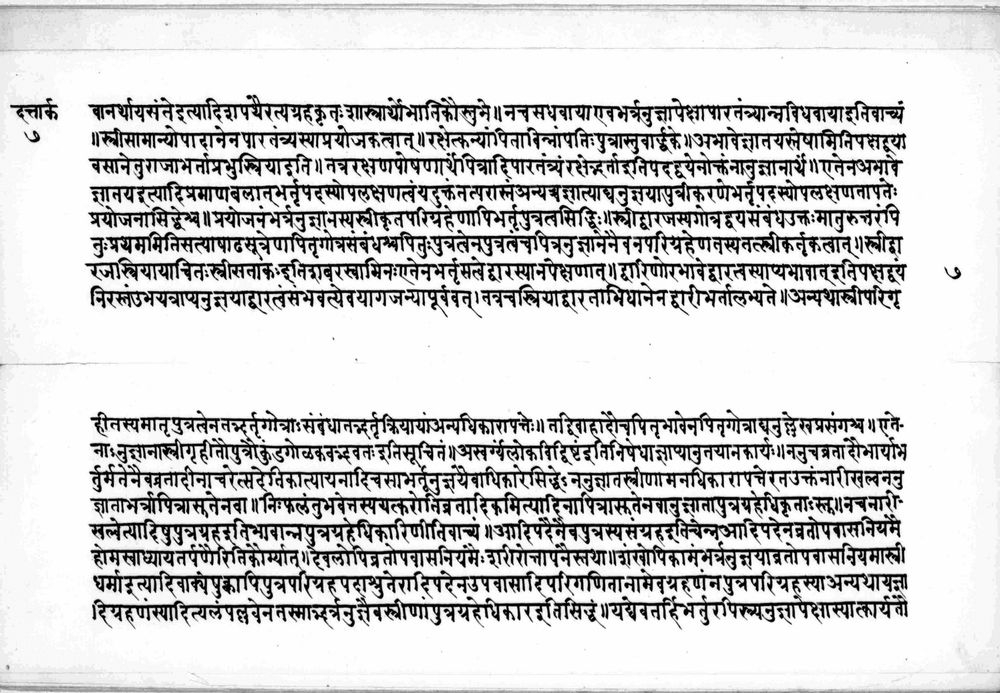 दत्तार्क
७
वानर्थायसंनेदत्यादिशपथैरत्यग्रहकृतः शास्त्रार्थोभातिकौस्तुभे॥ नचसधवायाएवभर्त्रनुज्ञापेक्षापारतंत्र्यान्नविधवायाइतिवाच्यं
॥स्त्रीसामान्योपादानेनपारतंत्र्यस्याप्रयोजकत्वात्॥रक्षेत्कन्यांपिताविन्नांपतिः पुत्रास्तुवार्द्धके॥ अभावेज्ञातयस्तेषामितिपक्षद्वया
वसानेतुराजाभर्ताप्रभुस्त्रियाइति॥ तत्ररक्षणपोषणार्थेपित्रादिपारतंत्र्यंरक्षेद्भर्ताइतिपदद्वयेनोक्तंनानुज्ञानार्थं॥एतेनअभावे
ज्ञातयइत्यादिप्रमाणबलात्भर्तृपदस्योपलक्षणत्वंयदुक्तंतत्परास्तंअन्यच्चज्ञात्याद्यनुज्ञयापुत्रीकरणेभर्तृपदस्योपलक्षणतापत्तेः
प्रयोजनासिद्धेश्च॥प्रयोजनंभर्त्रनुज्ञानस्यस्त्रीकृतपरिग्रहेणापिभर्तृपुत्रत्वसिद्धिः॥स्त्रीद्वारजस्यगोत्रद्वयसंबंधउक्तःमातुरुत्तरंपि
तुःप्रथममितिसत्याषाढसूत्रेणापितृगोत्रसंबंधश्चपितुःपुत्रत्वेनपुत्रत्वंचपित्रनुज्ञानेनैवनपरिग्रहेणतस्यतत्स्त्रीकर्तृकत्वात्॥स्त्रीद्वा
रजस्त्रियायाचितःस्त्रीसताकःइतिशबरस्वामिनःएतेनभर्तृसत्वेद्वारस्यानपेक्षणात्॥द्वारिणोरभावेद्वारत्वस्याप्यभावात्इतिपक्षद्वयं
७
निरस्तंउभयत्राप्यनुज्ञयाद्वारत्वंसंभवत्येवयागजन्यापूर्ववत्।तत्रचस्त्रियाद्वारताभिधानेनद्वारीभर्तालभ्यते॥अन्यथास्त्रीपरिगृ
हीतस्यमातृपुत्रत्वेनतद्भर्तृगोत्राःसंबंधात्तद्भर्तृक्रियायांअन्यधिकारापत्तेः॥ तद्विवाहादौचपितृभावेनपितृगोत्राद्यनुल्लेखप्रसंगश्च॥एते-
नाऽनुज्ञानास्त्रीगृहीतौपुत्रौकुंडगोळकवद्भवतःइतिसूचितं॥अस्वर्ग्यंलोकविद्विष्टंइतिनिषेधाज्ञाप्यानुतयानकार्यः॥ननुचव्रतादौभार्याभ
र्तुर्मतेनैवव्रतादीनाचरेत्सदेतिकात्यायनादिवचसाभर्तृनुज्ञयैवाधिकारेसिद्धेऽननुज्ञातस्त्रीणामनधिकारापत्तेरतउक्तंनारीखल्वननु
ज्ञाताभर्त्रापित्रासुतेनवा॥निःफलंतुभवेत्तस्ययत्करोतिव्रतादिकमित्यादिनापित्रासुतेनवानुज्ञातापुत्रग्रहेधिकृताःस्तु॥नचनारी-
खल्वेत्यादिषुपुत्रग्रहइतिभावान्नपुत्रग्रहेधिकारिणीतिवाच्यं॥आदिपदेनैवपुत्रस्यसंग्रहइतिचेन्नआदिपदेनव्रतोपवासनियमै
होमस्वाध्यायतर्पणैरितिकौर्म्यात्॥दैवलोपिव्रतोपवासनियमैःशरीरोत्तापनैस्तथा॥शंखोपिकामंभर्त्रनुज्ञयाव्रतोपवासनियमास्त्री
धर्माइत्यादिवाक्येषुक्वापिपुत्रपरिग्रहपदाश्रुतेरादिपदेनउपवासादिपरिगणितानामेवग्रहणंनपुत्रपरिग्रहस्याअन्यथायज्ञा
दिग्रहणंस्यादित्यलंपल्लवेनतस्माद्भर्त्रनुज्ञैवस्त्रीणांपुत्रग्रहेधिकारइतिसिद्धं॥यद्येवंतर्हिभर्तुरपिस्त्र्यनुज्ञापेक्षास्यात्कार्यतौ